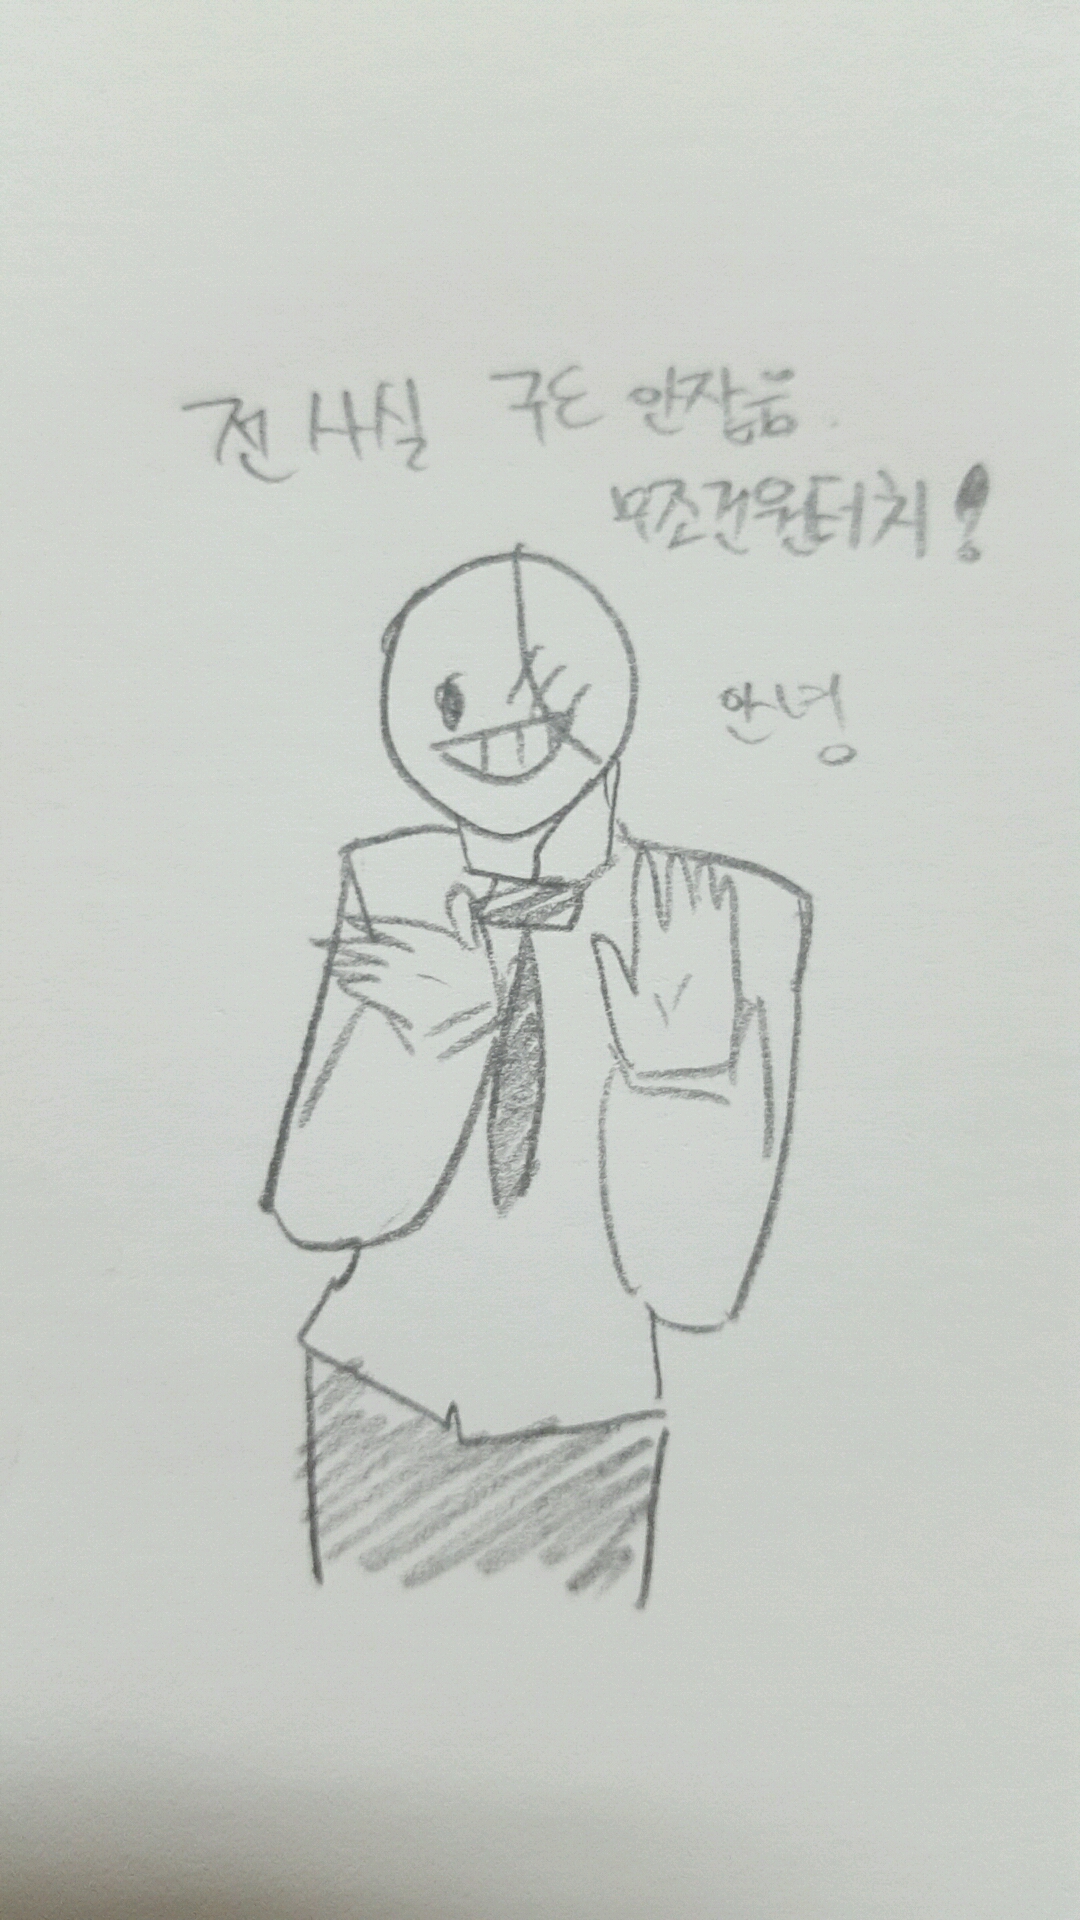 전 사실 구도 안잡음.
무조건원터치!
안녕